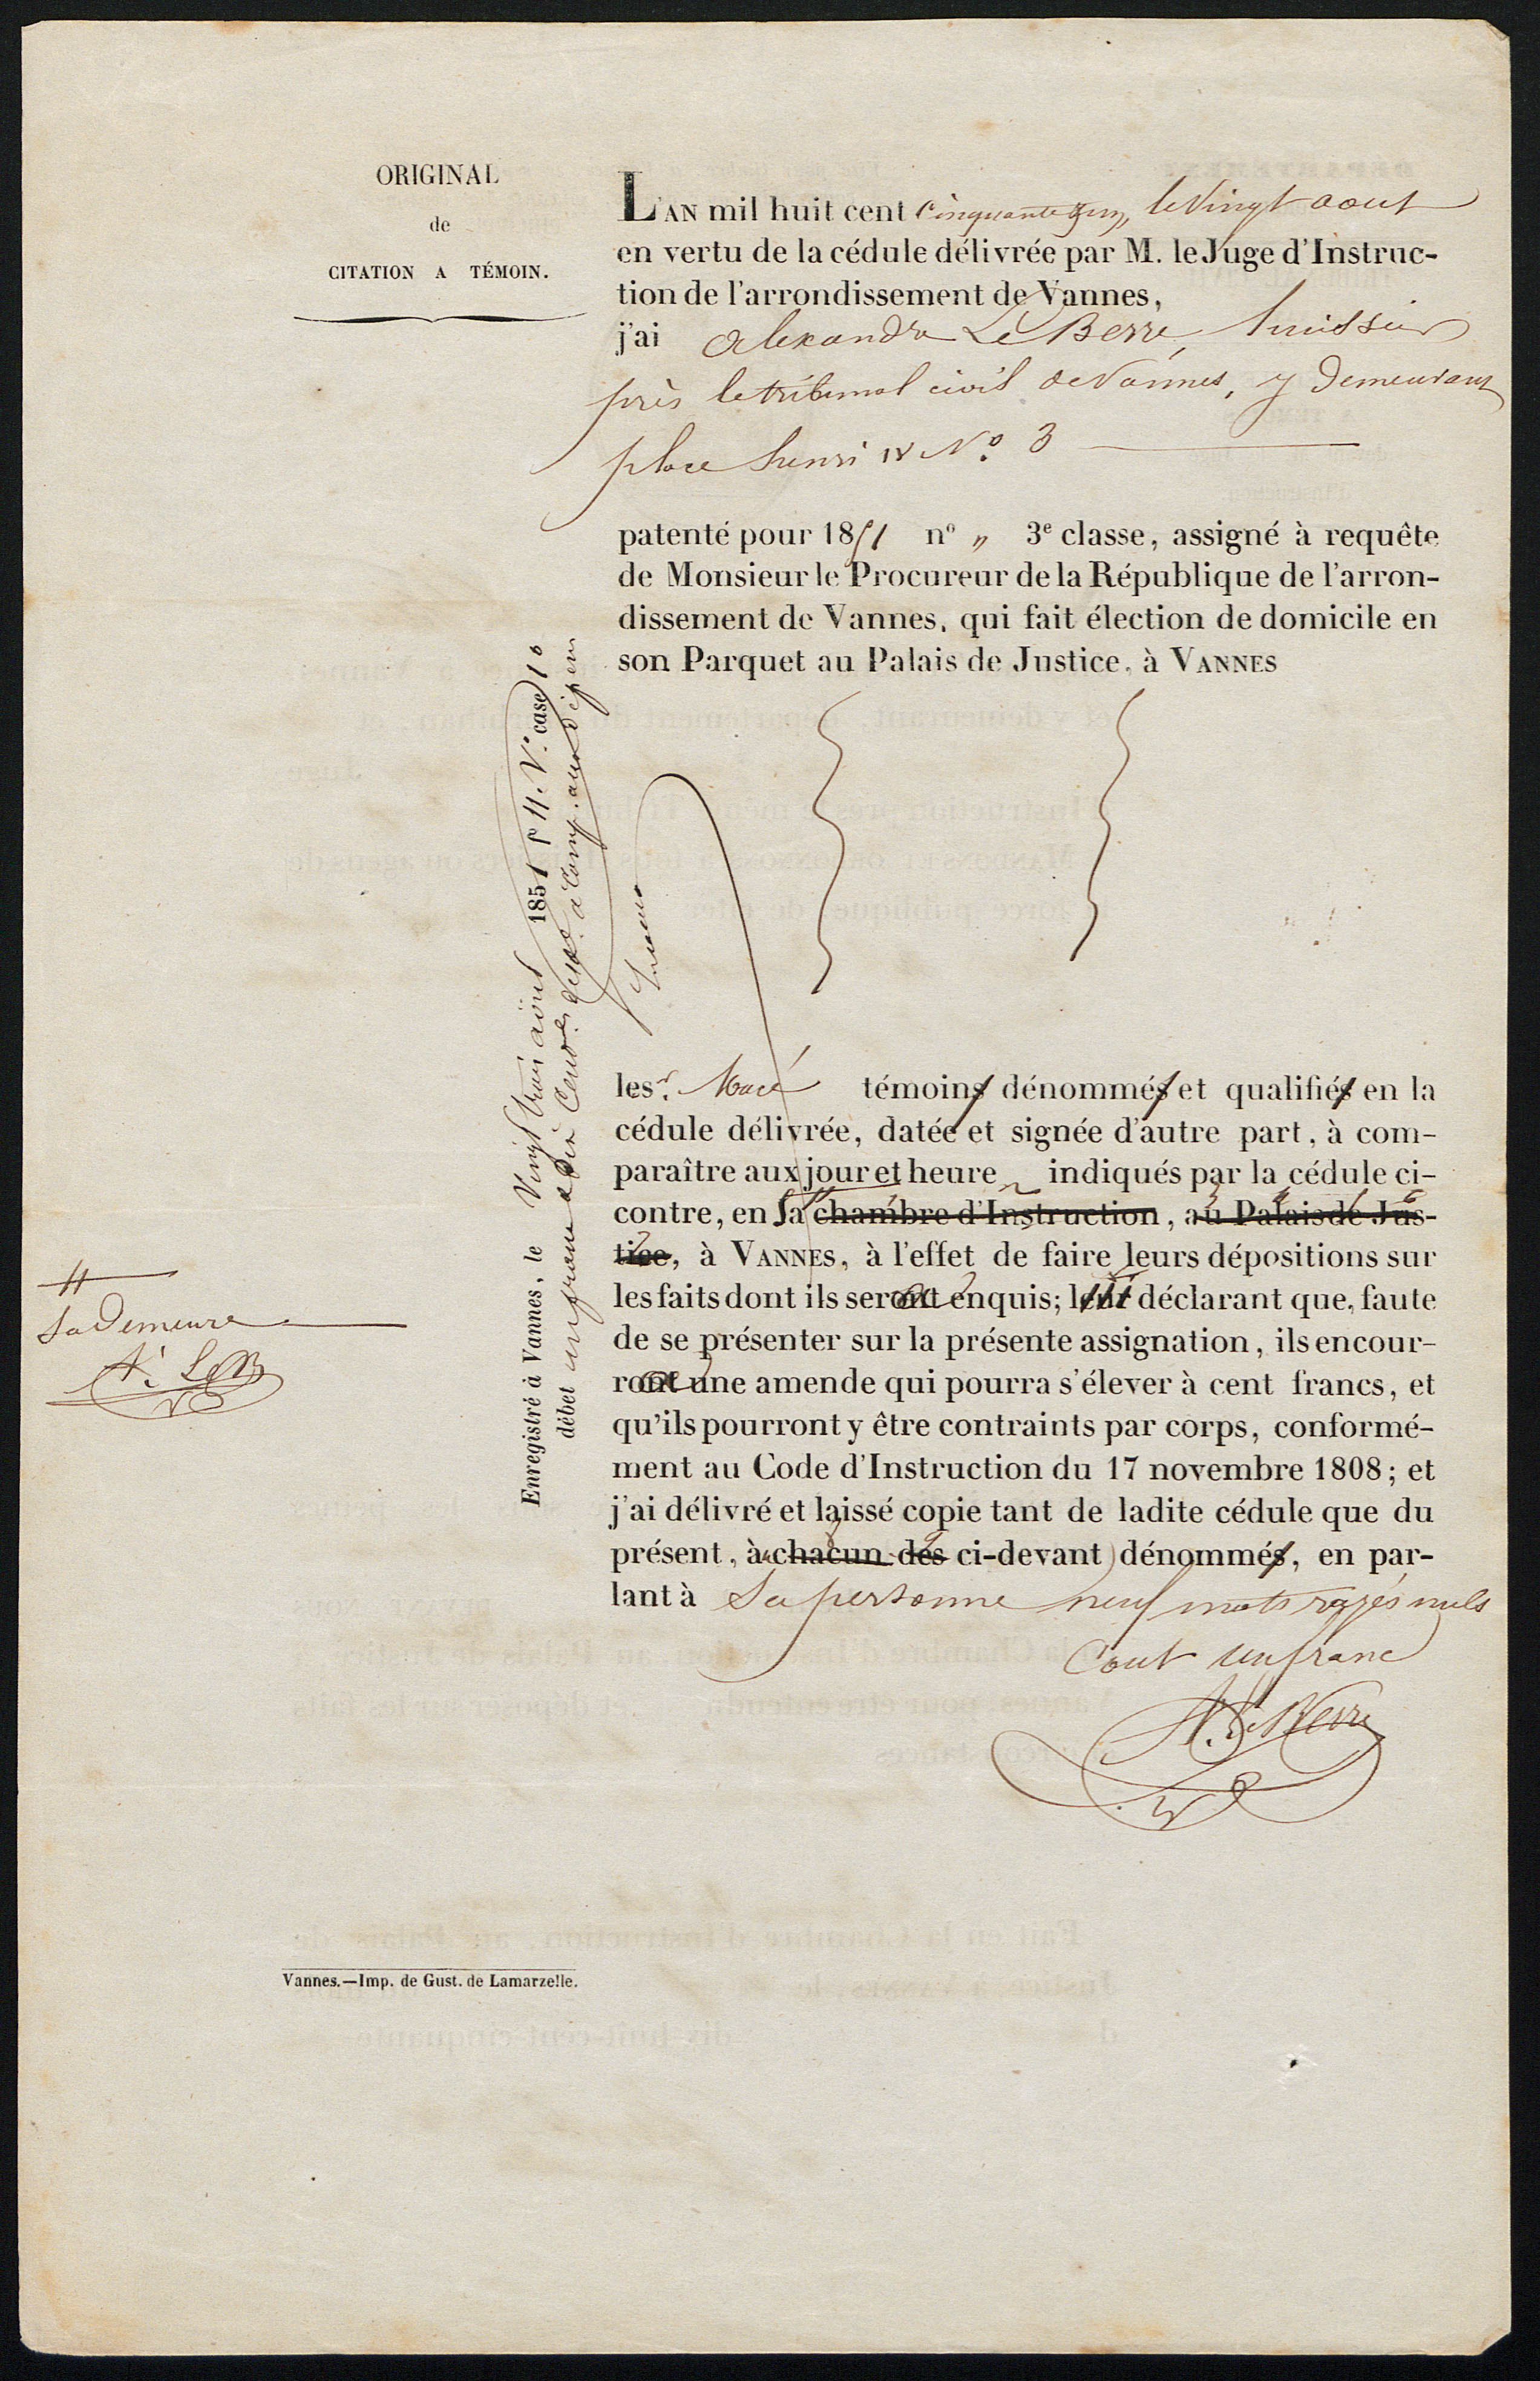 ORIGINAL
de
CITATION A TÉMOIN.
L'AN mil huit cent cinquante un, le vingt aout
en vertu de la cédule délivrée par M. le Juge d'Instruc-
tion de l'arrondissement de Vannes,
j'ai Alexandre Le Berre, huissier
près le tribunal civil de Vannes, y demeurant
place henri IV No. 3
patenté pour 1851 no " 3e classe, assigné à requête
de Monsieur le Procureur de la République de l'arron-
dissement de Vannes, qui fait élection de domicile en
son Parquet au Palais de Justice, à VANNES
les. Macé témoins dénommés et qualifiés en la
cédule délivrée, datée et signée d'autre part, à com-
paraître aux jour et heure indiqués par la cédule ci-
contre, en sa chambre d'Instruction, au Palais de Jus-
tice, à VANNES, à l'effet de faire leurs dépositions sur
les faits dont ils seront enquis; leur déclarant que, faute
de se présenter sur la présente assignation, ils encour-
ront une amende qui pourra s'élever à cent francs, et
qu'ils pourront y être contraints par corps, conformé-
ment au Code d'Instruction du 17 novembre 1808; et
j'ai délivré et laissé copie tant de ladite cédule que du
présent, à chacun des ci-devant dénommés, en par-
lant à sa personne neuf mots rayés nuls
Cout un franc
A. Le Berre
Enregistré à Vannes, le Vingt trois août 1851 fo 11. Vo. case 10
débet un franc dix Cent. à Comp. aux dépens
sa demeure
A. LeB
Vannes.—Imp. de Gust. de Lamarzelle.